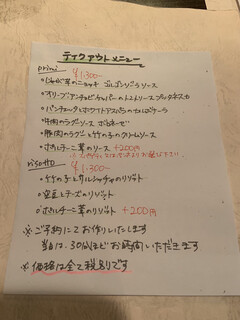 テイクアウトメニュー
primi ¥1,300ー
○じゃが芋のニョッキ ゴルゴンゾーラソース
○オリーブアンチョビケッパーのトマトソース プッタネスカ
○パンチェッタとホワイトアスパラのカルボナーラ
○牛肉のラグーソース ボロネーゼ
○豚肉のラグーと竹の子のクリームソース
○ポルチーニ茸のソース +200円
risotto ¥1,300ー
○竹の子とサルシッチャのリゾット
○空豆とチーズのリゾット
○ポルチーニ茸のリゾット +200円
※ご予約にてお作りいたします
当日は、30分ほどお時間いただきます
※価格は全て税別です